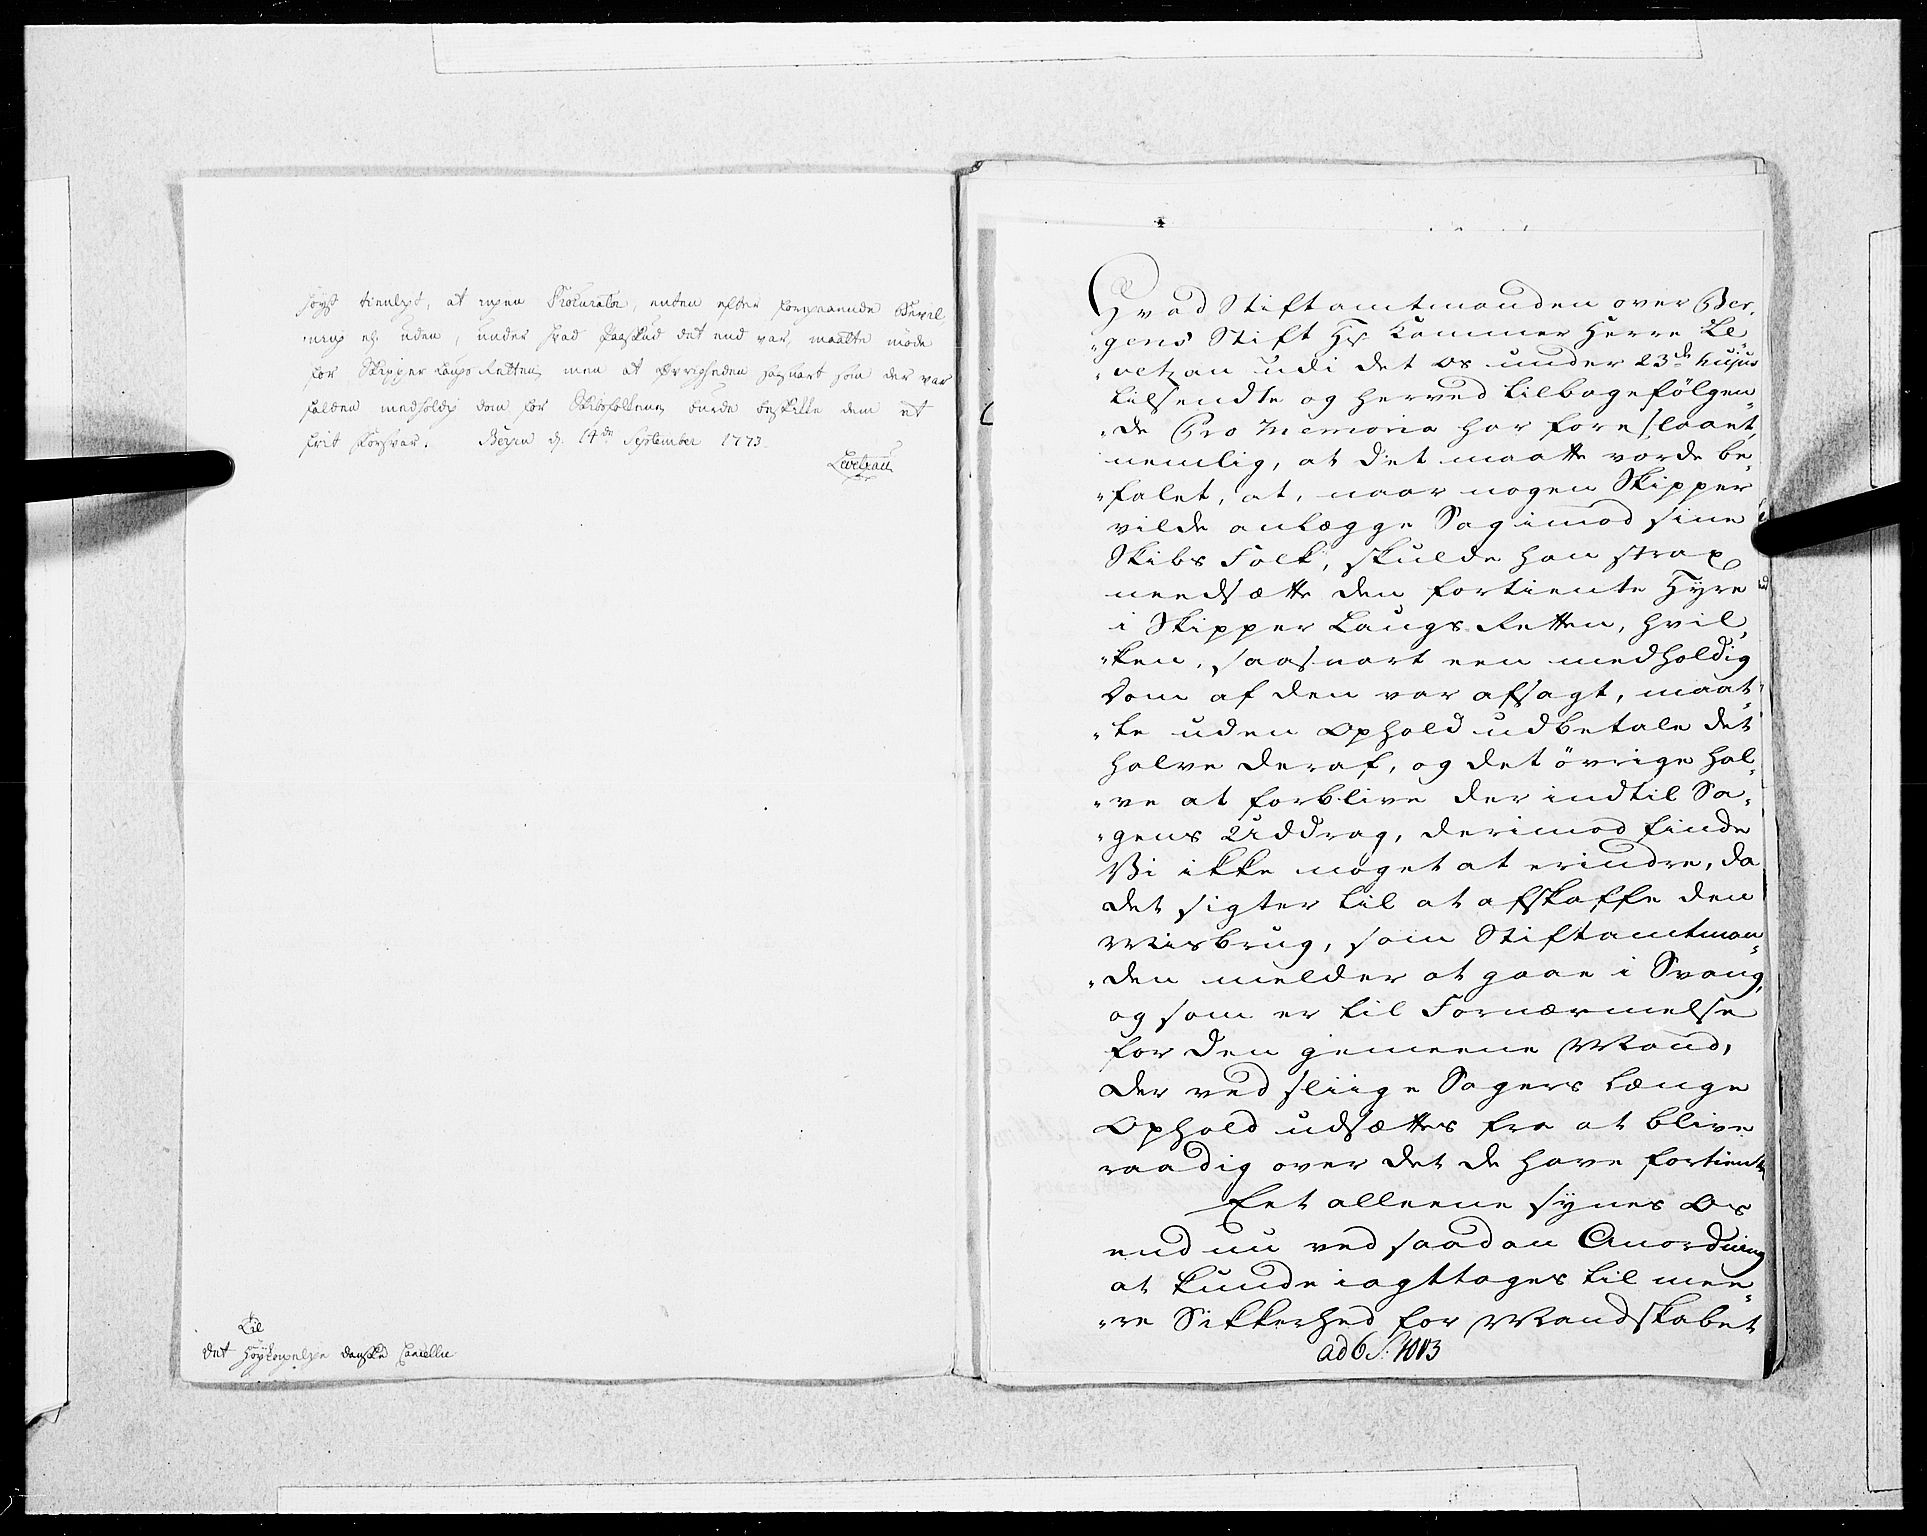 høyst tienligt, at ingen Procurator, enten efter foregaaende Bevil
ning el: uden, under hvad Paaskud det end var, maatte møde
for Skipper Laugs Retten, men at Øvrigheden saasnart som der var
falden medholdig Dom for Skibsfolkene burde beskikke dem et
frit Forsvar. Bergen d. 14de September 1773.
Levetzau
Til
Det Høykongelige Danske Cancellie
Hvad Stiftamtmanden over Ber-
gens Stift Hr Kammer Herre Le-
vetzau udi det os under 23de hujus
tilsendte og herved tilbagefölgen-
de Pro Memoria har foreslaaet,
nemlig, at det maatte vorde be-
falet, at, naar nogen Skipper
vilde anlægge Sag imod sine
Skibs Folk, skulde han strax
needsætte den fortiente Hyre
i Skipper Laugs Retten, hvil-
ken, saasnart een medholdig
Dom af den var afsagt, maat-
te uden Ophold udbetale det
halve deraf, og det övrige hal-
ve at forblive der indtil Sa-
gens Uddrag, derimod finde
Vi ikke noget at erindre, da
det sigter til at afskaffe den
Misbrug, som Stiftamtman-
den melder at gaae i Svang,
og som er til Fornærmelse
for den gemeene Mand,
der ved sliige Sagers længe
Ophold udsættes fra at blive
raadig over det de have fortient
Eet alleene synes Os
end nu ved saadan Anordning
at kunde iagttages til mee-
re Sikkerhed for Mandskabet
ad 6 S: 1013